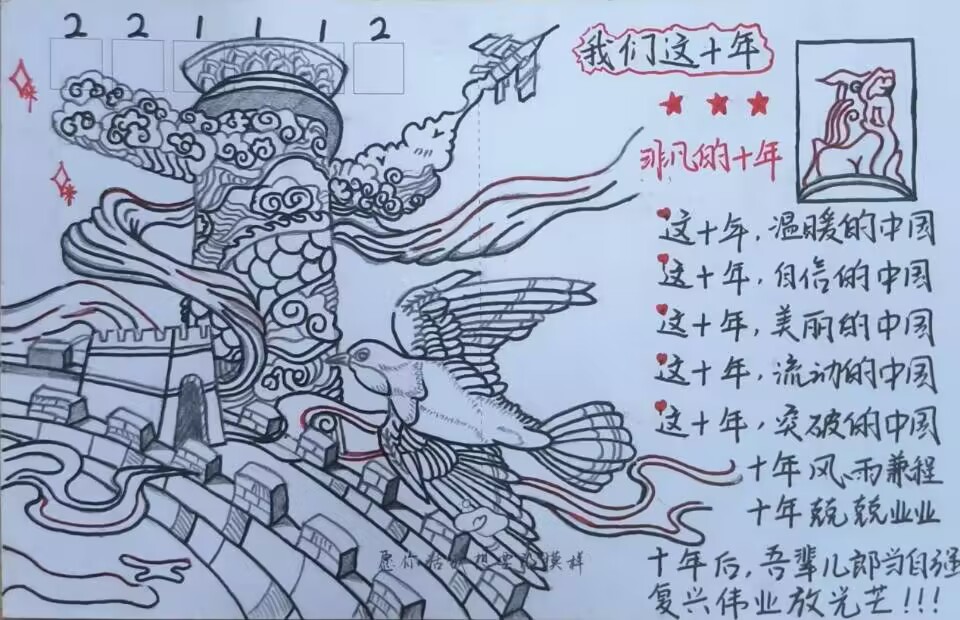 2 2 1 1 1 2
我们这十年
非凡的十年
这十年，温暖的中国
这十年，自信的中国
这十年，美丽的中国
这十年，流动的中国
这十年，突破的中国
十年风雨兼程
十年兢兢业业
十年后，吾辈儿郎当自强
复兴伟业放光芒!!!
愿你 想要 模样